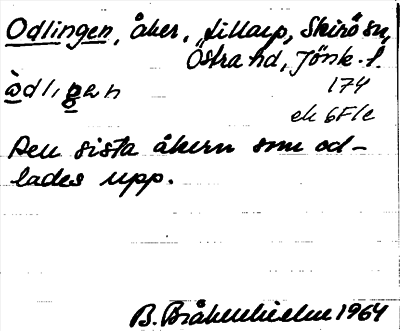 Odlingen, åker, Lillarp, Skirö sn,
Östra hd, Jönk. l.
174
ek 6F1e
Den sista åkern som od-
lades upp.
1964